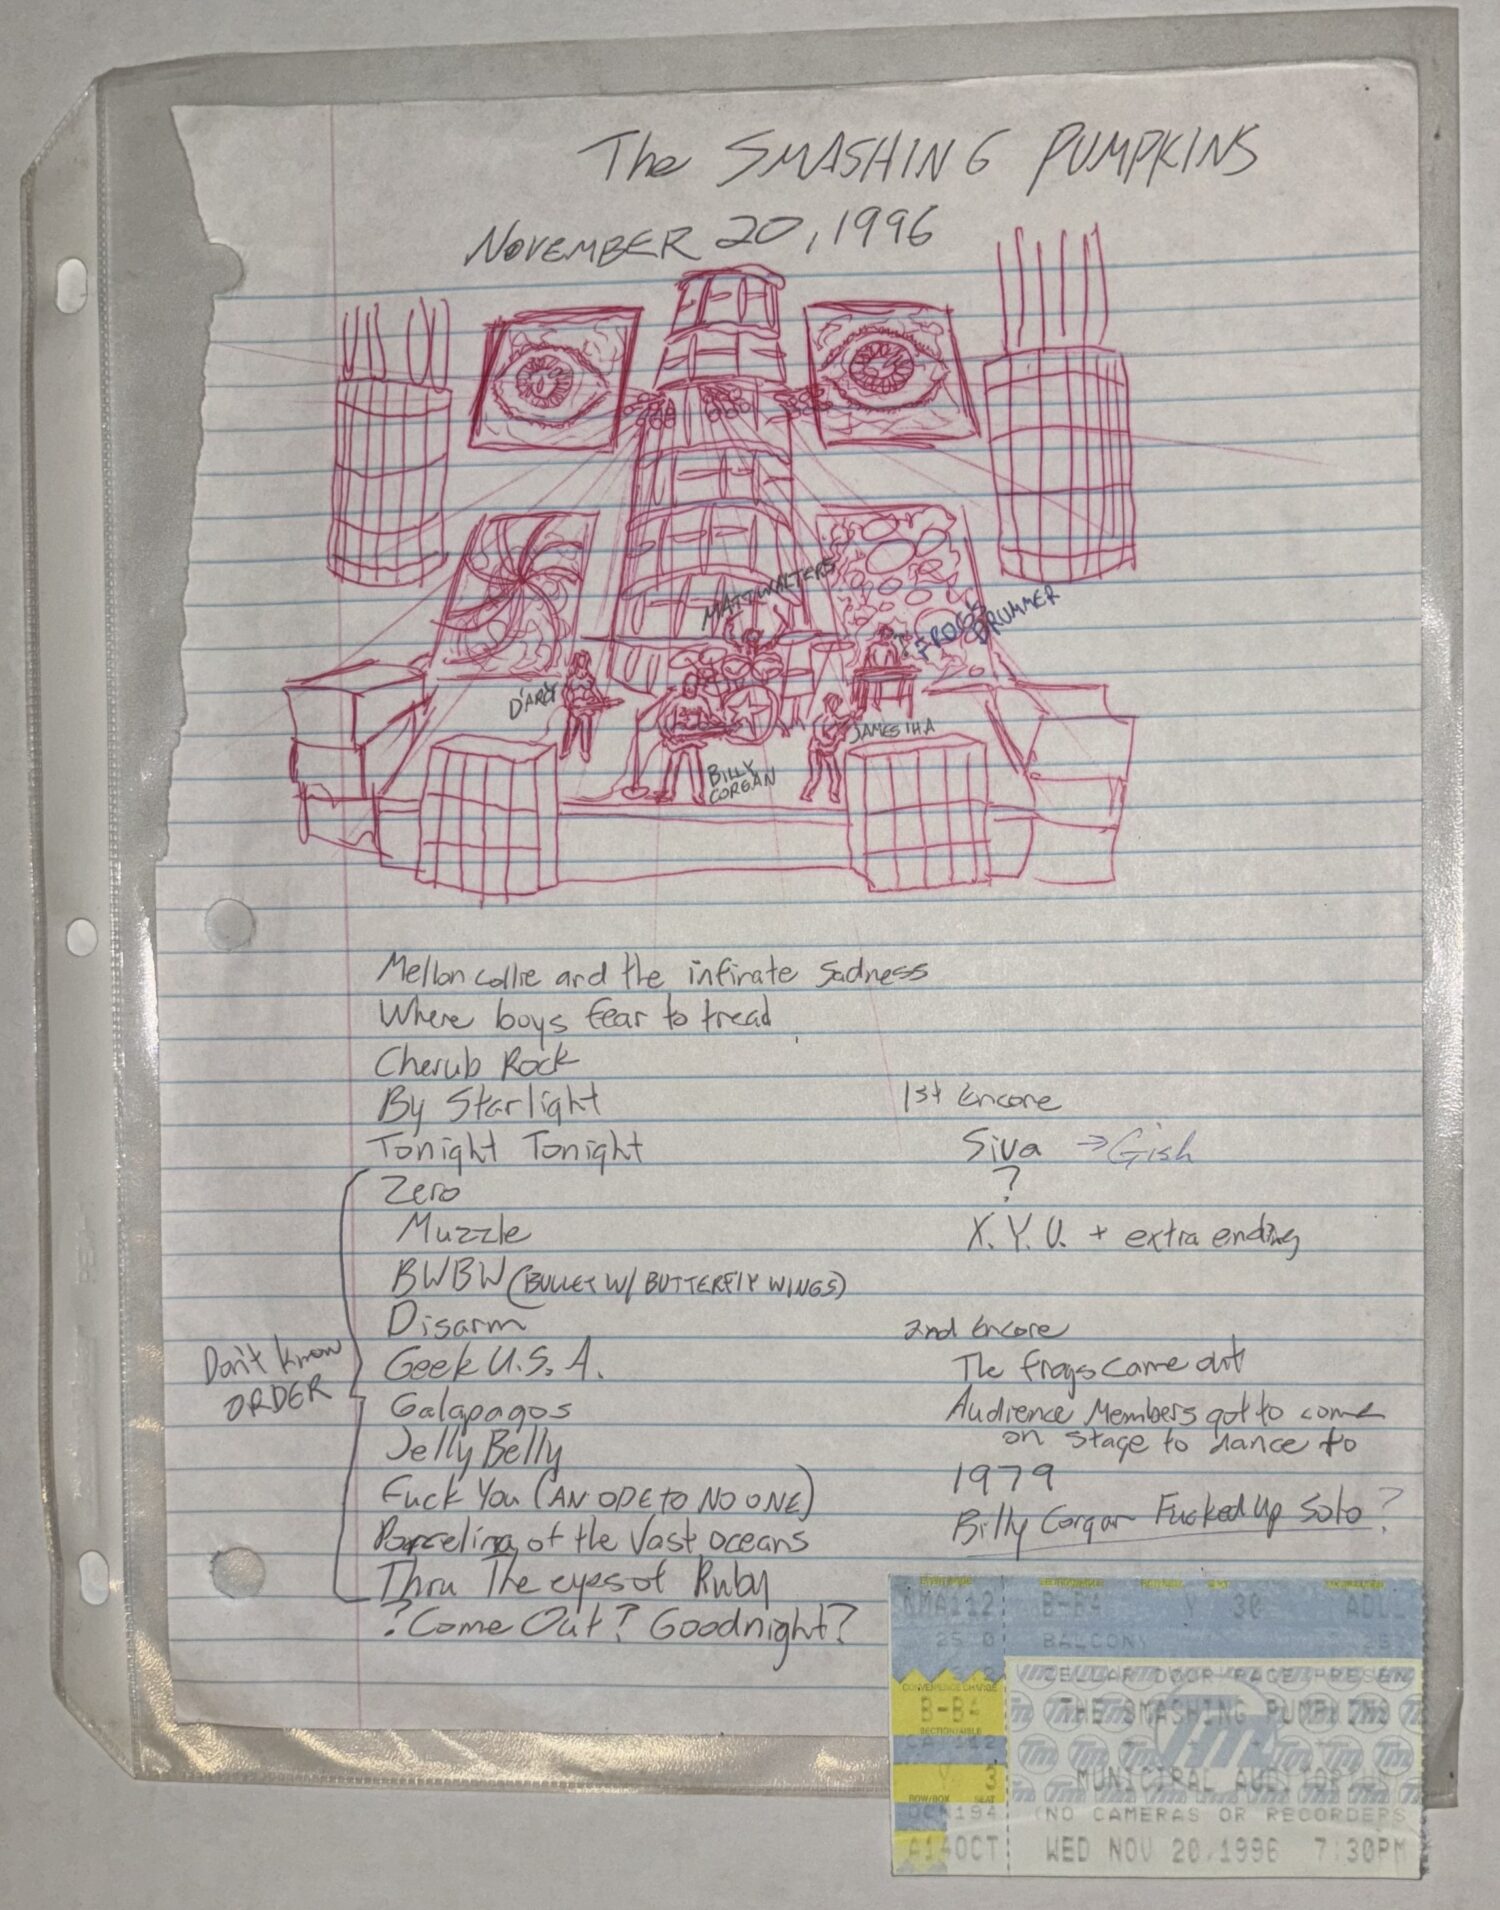 The SMASHING PUMPKINS
NOVEMBER 20, 1996
MATT WALTERS
FROGS DRUMMER
D'ARCY
JAMES IHA
BILLY CORGAN
Mellon collie and the infinate Sadness
Where boys fear to tread
Cherub Rock
By Starlight
Tonight Tonight
Zero
Muzzle
BWBW (BULLET W/ BUTTERFLY WINGS)
Disarm
Don't know ORDER
Geek U.S.A.
Galapagos
Jelly Belly
Fuck You (AN ODE TO NO ONE)
Porcelina of the Vast oceans
Thru The eyes of Ruby
? Come Out? Goodnight?
1st Encore
Siva → Gish
?
X.Y.U. + extra ending
2nd Encore
The frogs came out
Audience Members got to come
on stage to dance to
1979
Billy Corgan Fucked Up Solo?
NMA112 B-BA Y 30
BALCONY
CELLAR DOOR PACE PRESEN
CONVENIENCE CHARGE
B-BA
THE SMASHING PUMPKINS
SECTION/AISLE
MUNICIPAL AUDITORIUM
ROW/BOX SEAT
(NO CAMERAS OR RECORDERS
A14OCT WED NOV 20,1996 7:30PM